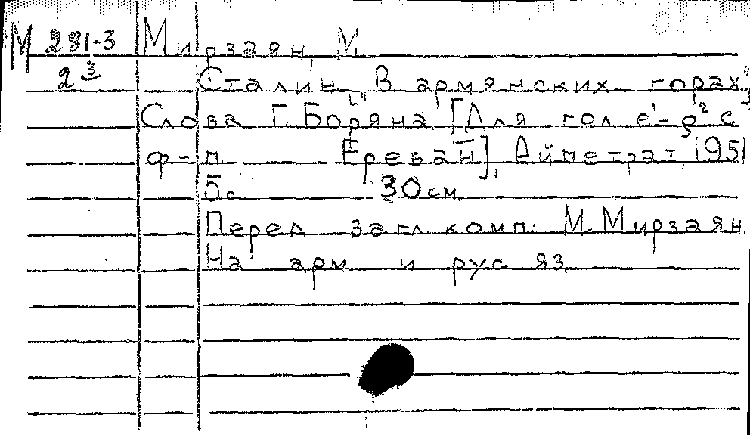 М 281-3 Мирзаян, М.
2 3 Сталин в армянских горах.
Слова Г. Боряна. [Для гол. e¹-g² с
ф-п. Ереван], Айпетрат, 1951
5с. 30см.
Перед загл. комп.: М. Мирзаян
На арм. и рус. яз.